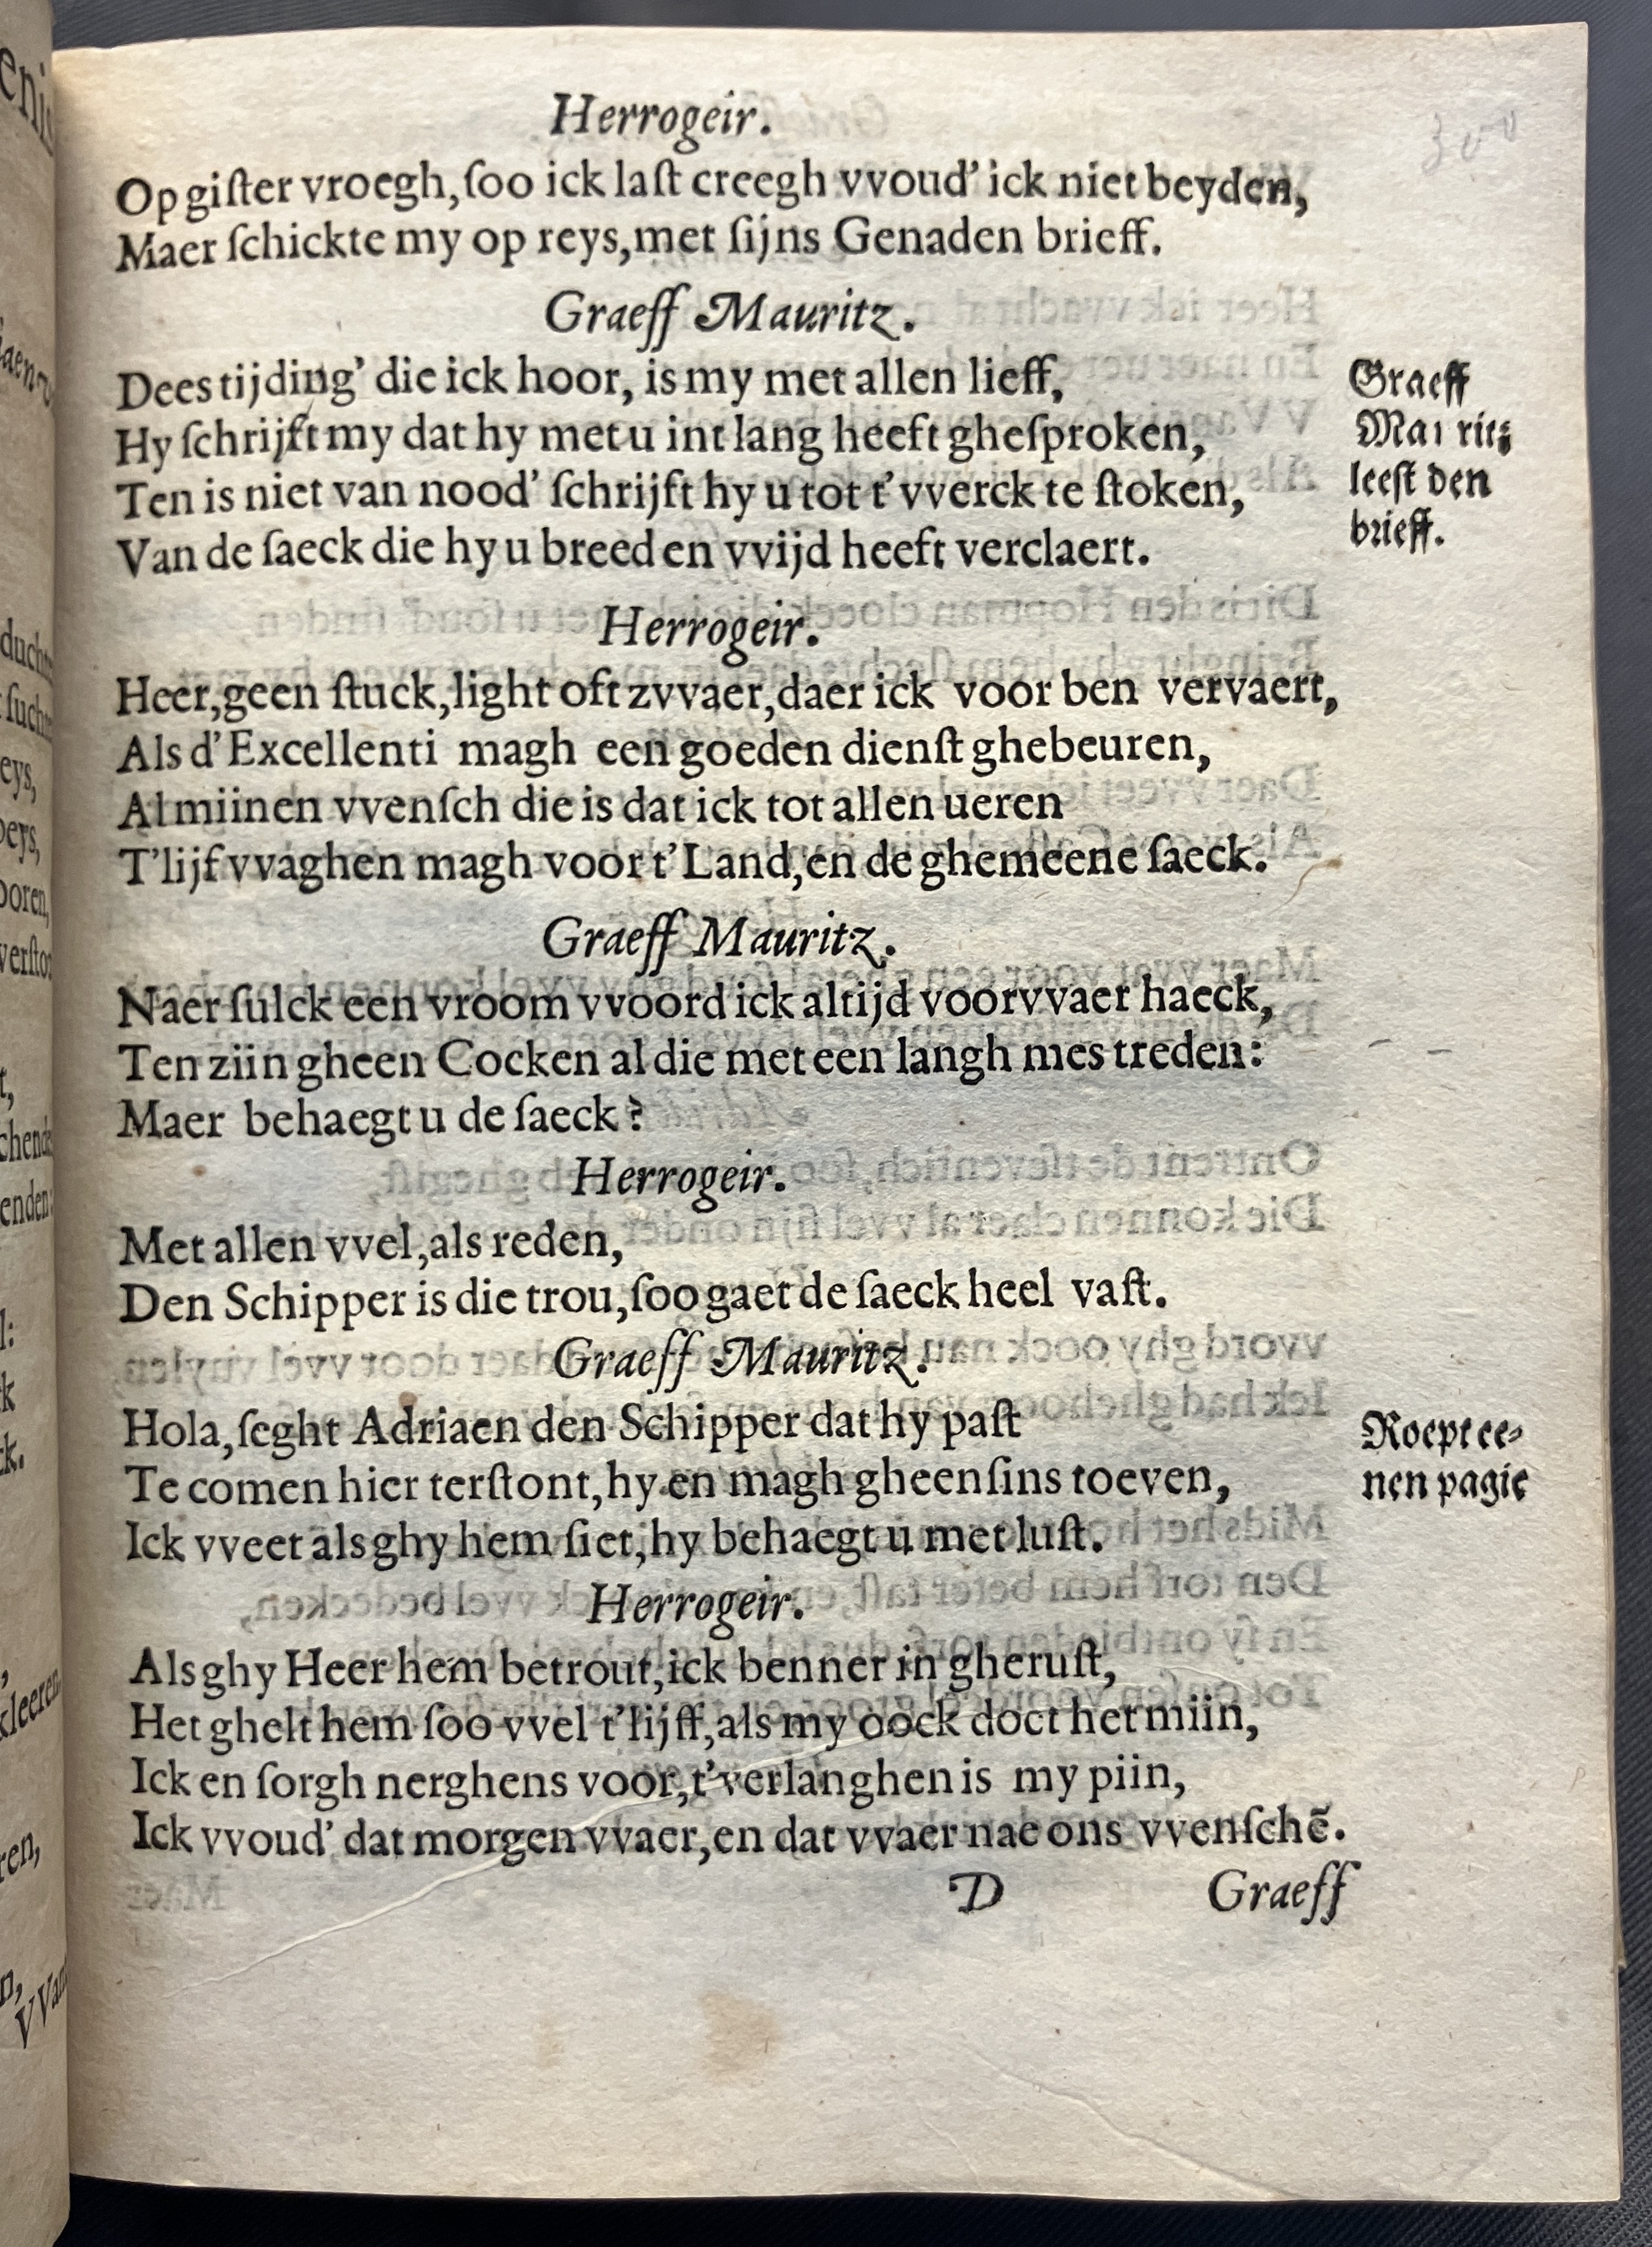 Herrogeir.
Op giſter vroegh, ſoo ick laſt creegh vvoud' ick niet beyden,
Maer ſchickte my op reys, met ſijns Genaden brieff.
Graeff Mauritz.
Dees tijding' die ick hoor, is my met allen lieff,
Hy ſchrijft my dat hy met u int lang heeft gheſproken,
Ten is niet van nood' ſchrijft hy u tot t'vverck te ſtoken,
Van de ſaeck die hy u breed en vvijd heeft verclaert.
Graeff
Mauritz
leeſt den
brieff.
Herrogeir.
Heer, geen ſtuck, light oft zvvaer, daer ick voor ben vervaert,
Als d'Excellenti magh een goeden dienſt ghebeuren,
Al miinen vvenſch die is dat ick tot allen ueren
T'lijf vvaghen magh voor t'Land, en de ghemeene ſaeck.
Graeff Mauritz.
Naer ſulck een vroom vvoord ick altijd voorvvaer haeck,
Ten ziin gheen Cocken al die met een langh mes treden:
Maer behaegt u de ſaeck?
Herrogeir.
Met allen vvel, als reden,
Den Schipper is die trou, ſoo gaet de ſaeck heel vaſt.
Graeff Mauritz.
Hola, ſeght Adriaen den Schipper dat hy paſt
Te comen hier terſtont, hy en magh gheenſins toeven,
Ick vveet als ghy hem ſiet, hy behaegt u met luſt.
Roept ee-
nen pagie
Herrogeir.
Als ghy Heer hem betrout, ick benner in gheruſt,
Het ghelt hem ſoo vvel t'lijff, als my oock doet het miin,
Ick en ſorgh nerghens voor, t'verlanghen is my piin,
Ick vvoud' dat morgen vvaer, en dat vvaer nae ons vvenſchē.
D
Graeff